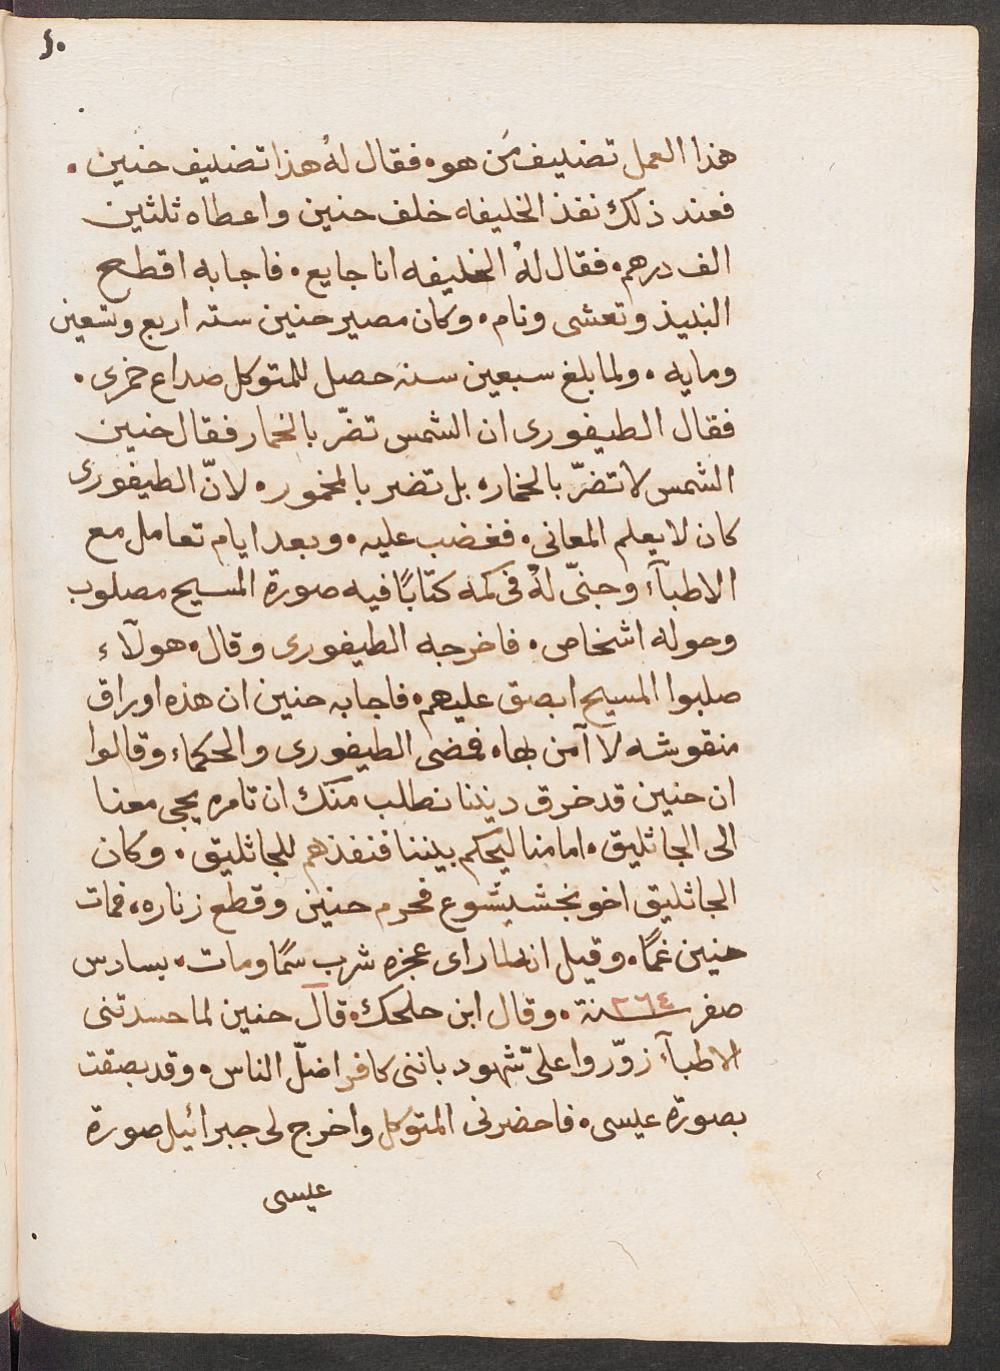 ٤٠
هذا العمل تضنيف مَن هو، فقال لهُ هذا تضنيف حنين.
فعند ذلك نفذ الخليفه خلف حنين واعطاه ثلثين
الف درهم، فقال لهُ الخليفه انا جايع، فاجابه اقطع
النبيذ وتعشى ونام، وكان مصير حنين سنه اربع وتسعين
ومايه، ولما بلغ سبعين سنه حصل للمتوكل صداع خمرى.
فقال الطيفورى ان الشمس تضّر بالخمار فقال حنين
الشمس لا تضرّ بالخمار، بل تضر بالمخمور، لانّ الطيفورى
كان لا يعلم المعانى، فغضب عليه، وبعد ايام تعامل مع
الاطبآء وجنّى لهُ فى كمه كتابًا فيه صورة المسيح مصلوب
وحوله اشخاص، فاخرجه الطيفورى وقال، هولآء
صلبوا المسيح ابصق عليهم، فاجابه حنين ان هذه اوراق
منقوشه لا آمن بها، فمضى الطيفورى والحكماء وقالوا
ان حنين قد خرق ديننا نطلب منك ان تامره يجى معنا
الى الجاثليق، امامنا ليحكم بيننا فنفذهم للجاثليق، وكان
الجاثليق اخو بخشيشوع فحرم حنين وقطع زناره، فمات
حنين غمًا، وقيل انه لما راى عجزه شرب سمًا ومات، بسادس
صفر سنة ٢٦٤، وقال ابن حلحك، قال حنين لما حسدتنى
الاطبآء زوّروا علىّ شهود باننى كافر اضلّ الناس، وقد بصقت
بصورة عيسى، فاحضرنى المتوكل واخرج لى جبرائيل صورة
عيسى